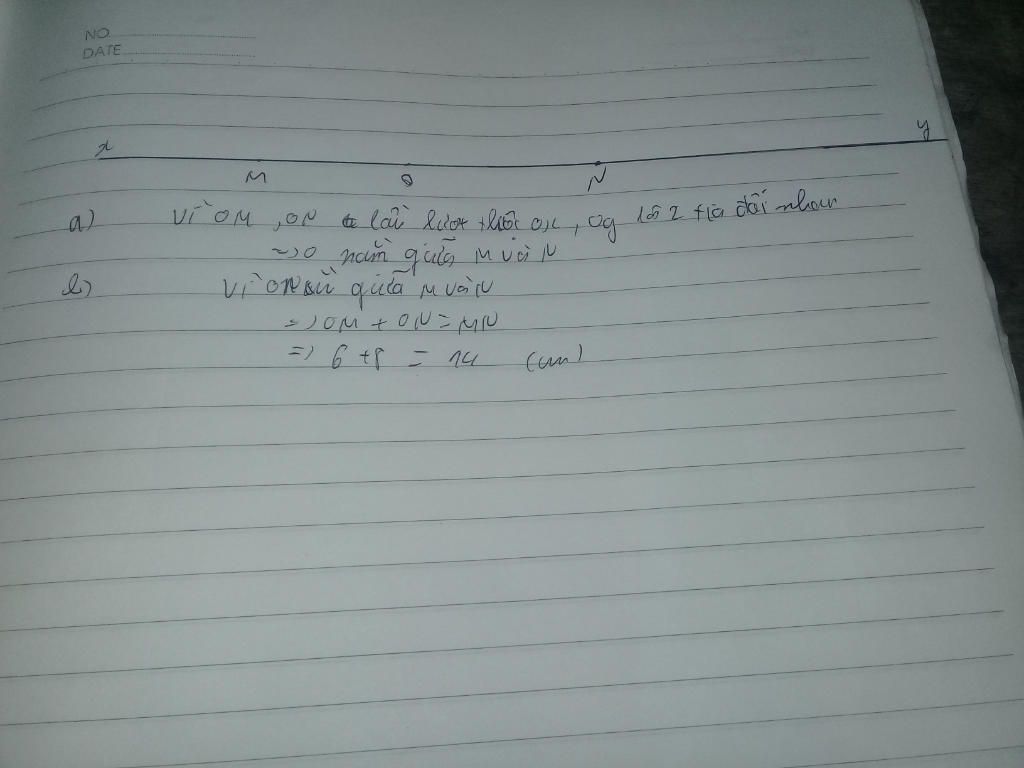 NO
DATE
x y
M O N
a) Vì OM, ON lần lượt thuộc Ox, Oy là 2 tia đối nhau
=> O nằm giữa M và N
b) Vì O giữa M và N
=> OM + ON = MN
=> 6 + 8 = 14 (cm)